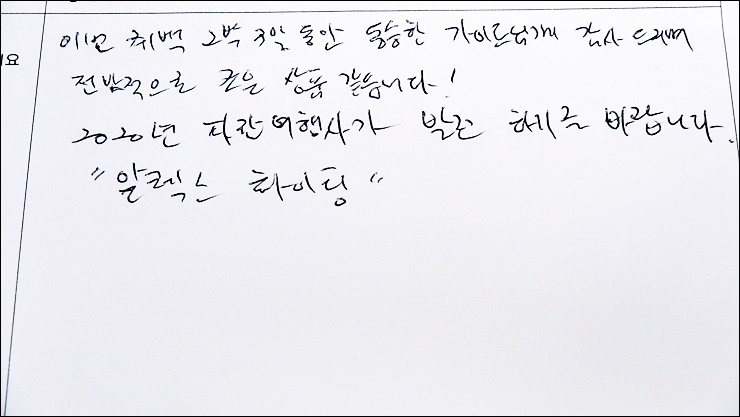 이번 퀘벡 2박 3일 동안 동승한 가이드님께 감사 드리며
요
전반적으로 좋은 상품 같습니다!
2020년 파란여행사가 발전 하기를 바랍니다.
"알렉스 화이팅"